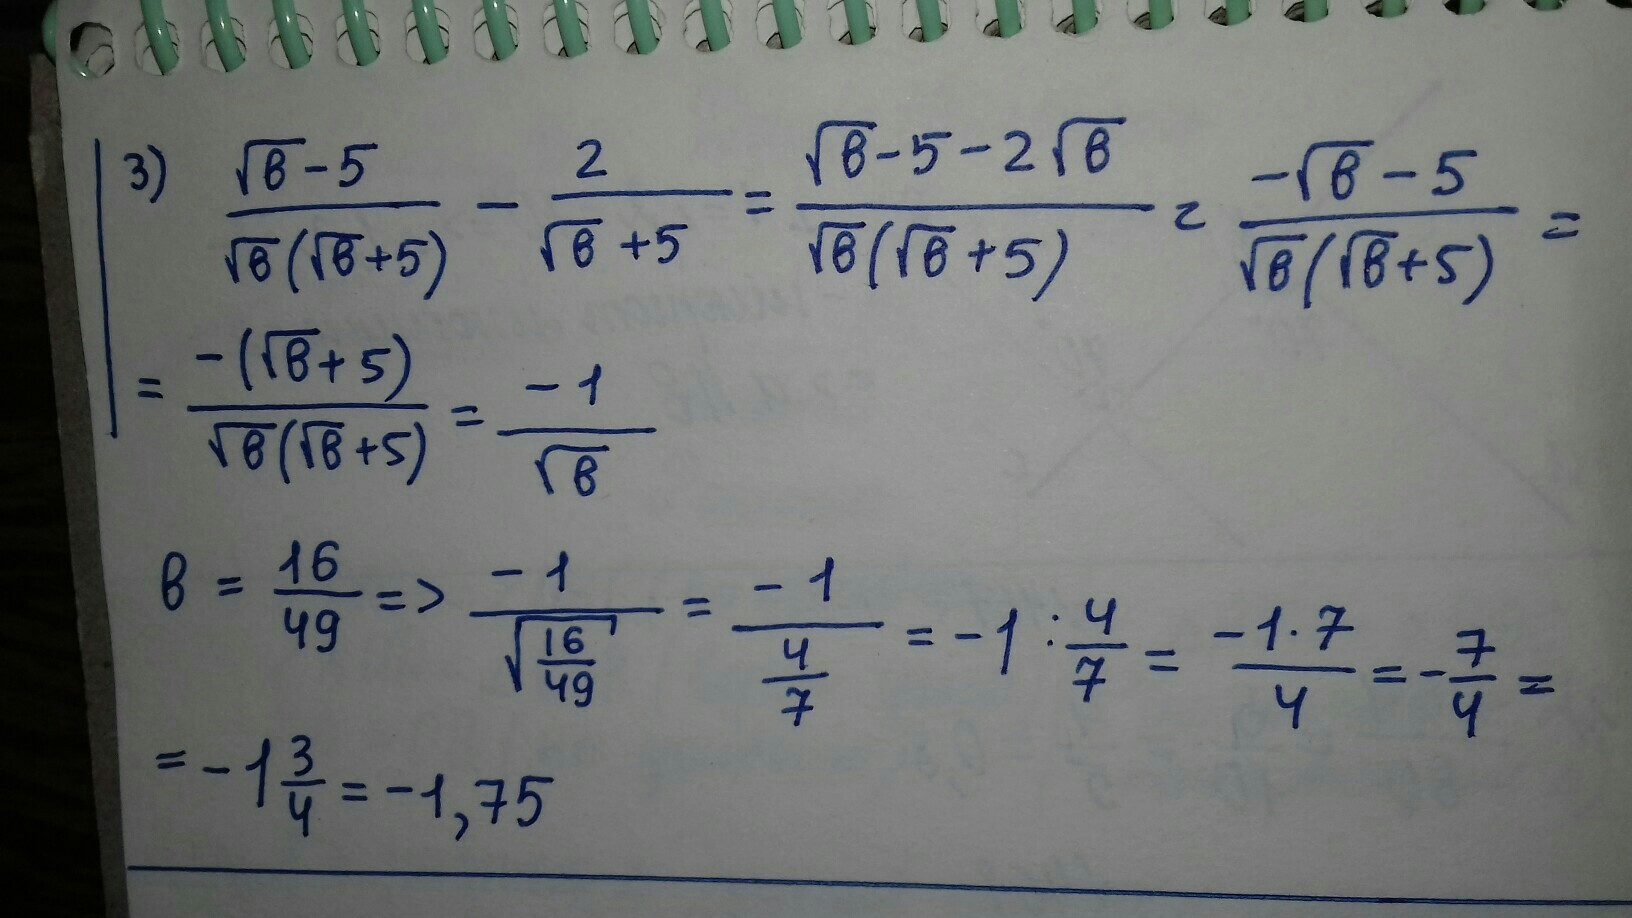 3) (√в - 5)/(√в(√в+5)) - 2/(√в +5) = (√в - 5 - 2√в)/(√в(√в+5)) = (-√в - 5)/(√в(√в+5)) =
= (-(√в+5))/(√в(√в+5)) = (-1)/(√в)
в = 16/49 => (-1)/(√(16/49)) = (-1)/(4/7) = -1 : 4/7 = (-1·7)/4 = -7/4 =
= -1 3/4 = -1,75